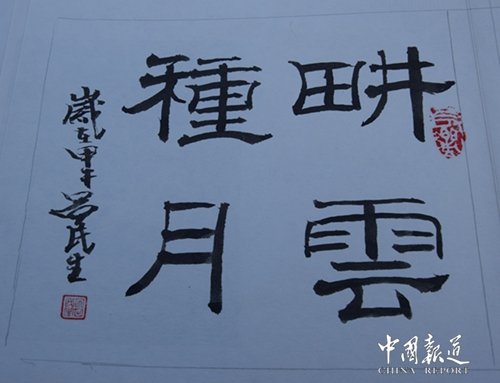 畊雲
種月
歲在甲午民生
中國報道
CHINA REPORT